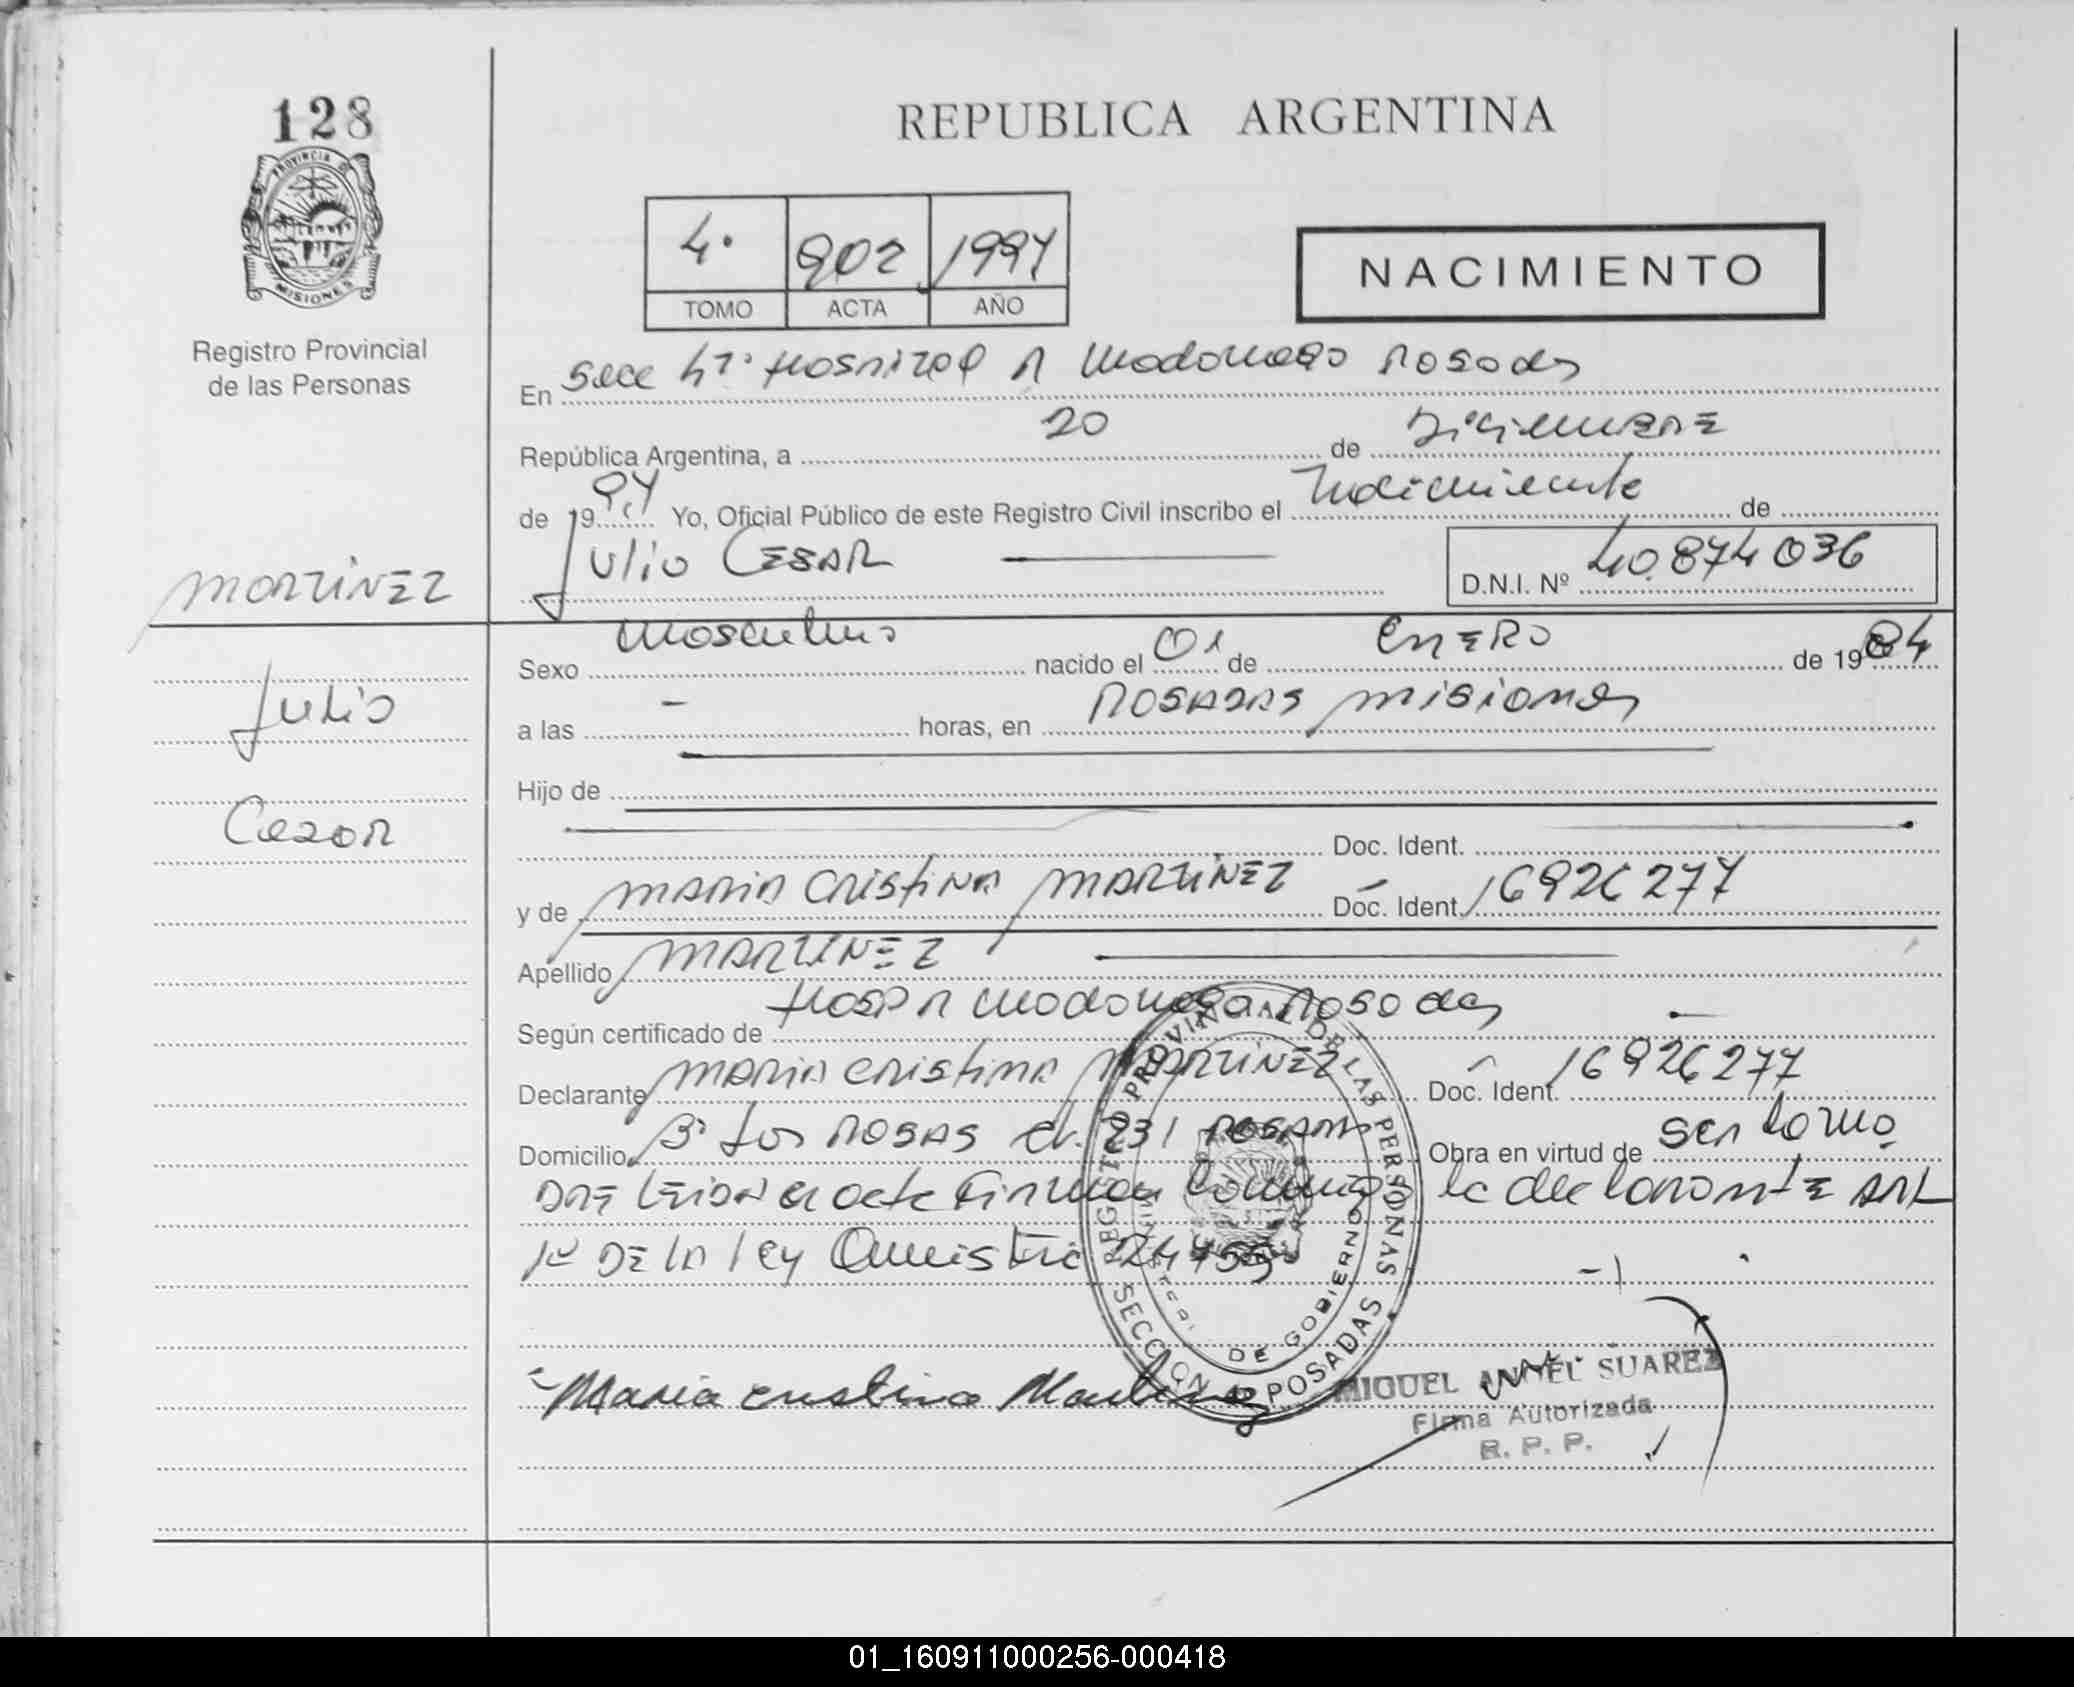 128
REPUBLICA ARGENTINA
PROVINCIA D MISIONES
Registro Provincial
de las Personas
4º 902 1997
TOMO ACTA AÑO
NACIMIENTO
En Secc 4ª Hospital R Madariaga Posadas
República Argentina, a 20 de Diciembre
de 1997 Yo, Oficial Público de este Registro Civil inscribo el Nacimiento de
Julio CESAR D.N.I. Nº 40.874036
MARTINEZ
Julio
Cesar
Sexo Masculino nacido el 01 de ENERO de 1984
a las - horas, en POSADAS MISIONES
Hijo de
Doc. Ident.
y de MARIA CRISTINA MARTINEZ Doc. Ident. 16926277
Apellido MARTINEZ
Según certificado de Hosp R Madariaga Posadas
Declarante MARIA CRISTINA MARTINEZ Doc. Ident. 16926277
Domicilio Bº Los ROSAS Ch. 231 POSADAS Obra en virtud de
acta la declarante ART
1º DE LA Ley 24755
REGISTRO PROVINCIAL DE LAS PERSONAS
SECCION 4ª POSADAS
DE GOBIERNO
Maria Cristina Martinez
MIGUEL ANGEL SUAREZ
Firma Autorizada
R. P. P.
01_160911000256-000418